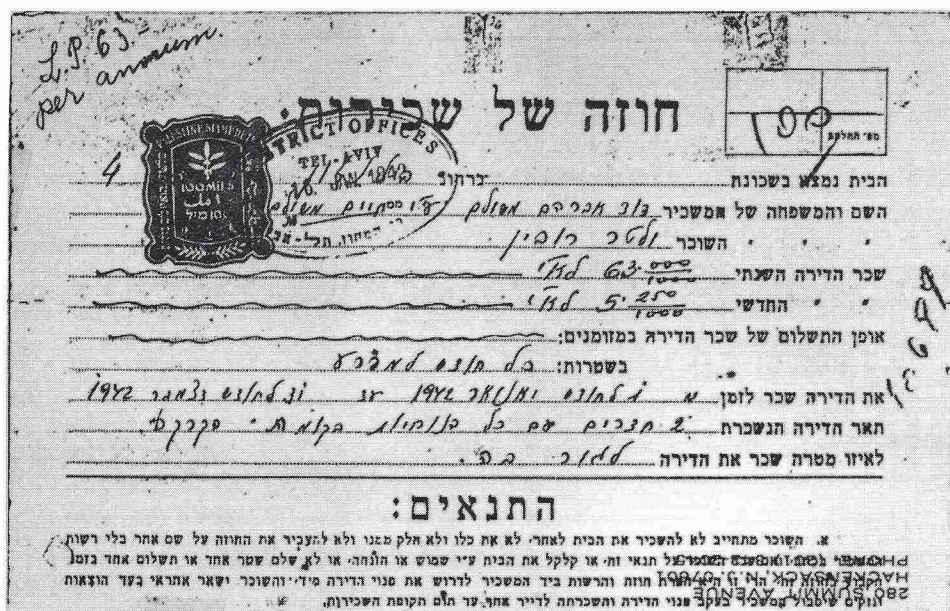 L.P. 63.-
per annum.
חוזה של שכירות.
מס׳ החלקה
4
100 MILS
100 מיל
DISTRICT OFFICES
TEL-AVIV
JAN. 1942
הבית נמצא בשכונת ברחוב
השם והמשפחה של המשכיר דוד אברהם משולם ע״י חיים משולם
" " " השוכר ולטר רובין
שכר הדירה השנתי 63 000/1000 לא״י
" " החדשי 5 250/1000 לא״י
אופן התשלום של שכר הדירה במזומנים:
בשטרות: כל חודש למפרע
את הדירה שכר לזמן מ לחודש ינואר 1942 עד לחודש דצמבר 1942
תאר הדירה הנשכרת 2 חדרים עם כל הנוחיות בקומת קרקע
לאיזו מטרה שכר את הדירה לגור בה.
התנאים:
א. השוכר מתחייב לא להשכיר את הבית לאחר, לא את כלו ולא חלק ממנו ולא להעביר את החוזה על שם אחר בלי רשות
על תנאי זה, או קלקל את הבית ע״י שמוש או הזנחה, או לא שלם שטר אחד או תשלום אחד בזמנו
חוזה והרשות ביד המשכיר לדרוש את פנוי הדירה מיד, והשוכר ישאר אחראי בעד הוצאות
ונזקים שיסבול המשכיר בעקב פנוי הדירה והשכרתה לדייר אחר עד תום תקופת השכירות.
280 SUMMIT AVENUE
HACKENSACK, N.J. 07601
PHONE: